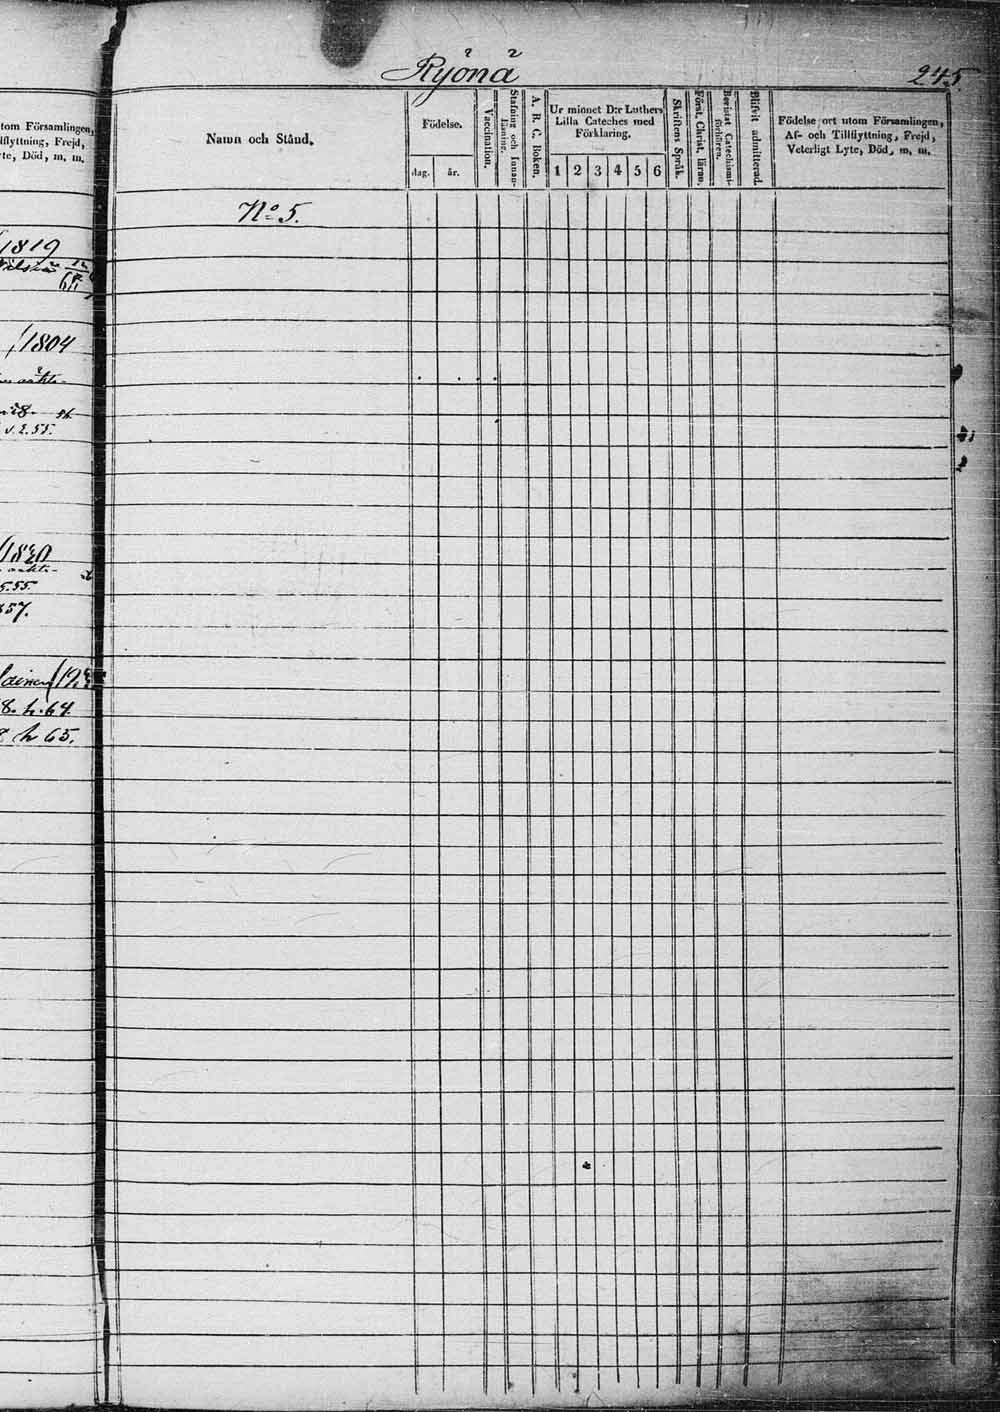 Ryönä
245.
tom Församlingen,
lflyttning, Frejd,
te, Död, m. m.
1819
12
1804
v. 2. 55.
1820
5.55.
57.
8. h. 64.
h 65.
Namn och Stånd.
Födelse.
dag. år.
Vaccination.
Stafning och Innan-
läsning.
A. B. C. Boken.
Ur minnet D:r Luthers
Lilla Cateches med
Förklaring.
1 2 3 4 5 6
Skriftens Språk.
Först. Christ. läran.
Bevistat Catechismi-
förhören.
Blifvit admitterad.
Födelse ort utom Församlingen,
Af- och Tillflyttning, Frejd,
Veterligt Lyte, Död, m. m.
No 5.